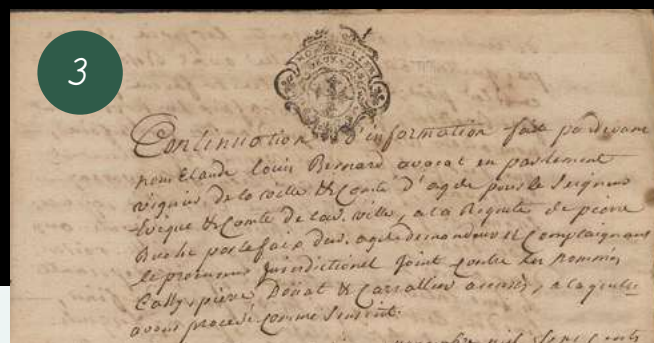 3
MONTPELLIER
Continuation d'information faite pardevant
nous Claude Louis Bernard avocat en parlement
viguier de la ville & Comté d'agde pour le Seigneur
Evêque & Comte de lad. ville, a la Requête de pierre
Buche portefaix dud. agde demandeur et Complaignant
le procureur Jurisdictionel Joint contre les nommés
Cassy, pierre Donat & Carrallier accusés, a laquelle
avons procédé comme s'ensuit.
mil Sept cents